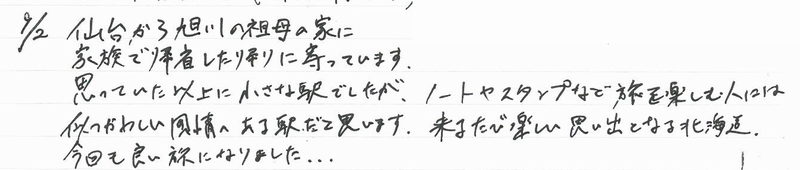 9/2 仙台から旭川の祖母の家に
家族で帰省した帰りに寄っています.
思っていた以上に小さな駅でしたが、ノートやスタンプなど旅を楽しむ人には
似つかわしい風情のある駅だと思います. 来るたび楽しい思い出となる北海道.
今回も良い旅になりました...